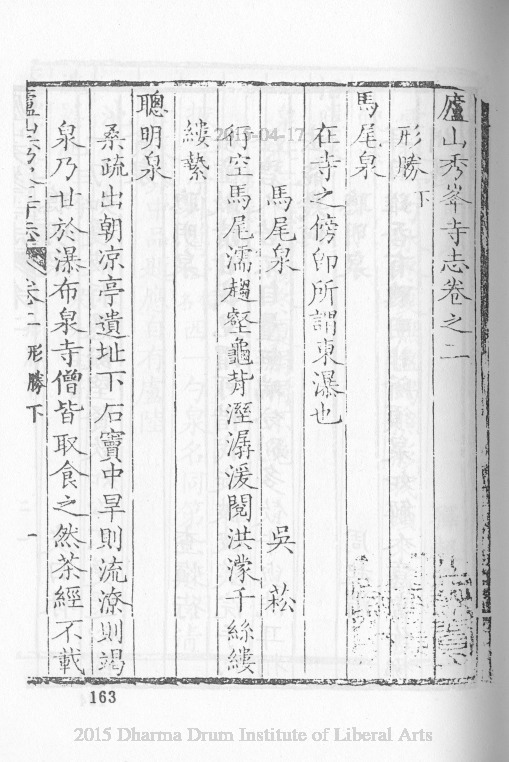 廬山秀峯寺志卷之二
形勝下
馬尾泉
在寺之傍卽所謂東瀑也
馬尾泉 吳菘
行空馬尾濡趨壑龜背溼潺湲閱洪濛千絲縷
縷縶
聰明泉
桑疏出朝凉亭遺址下石竇中旱則流潦則竭
泉乃甘於瀑布泉寺僧皆取食之然茶經不載
廬山秀峯寺志 卷二 形勝下 一
2015-04-17
163
2015 Dharma Drum Institute of Liberal Arts